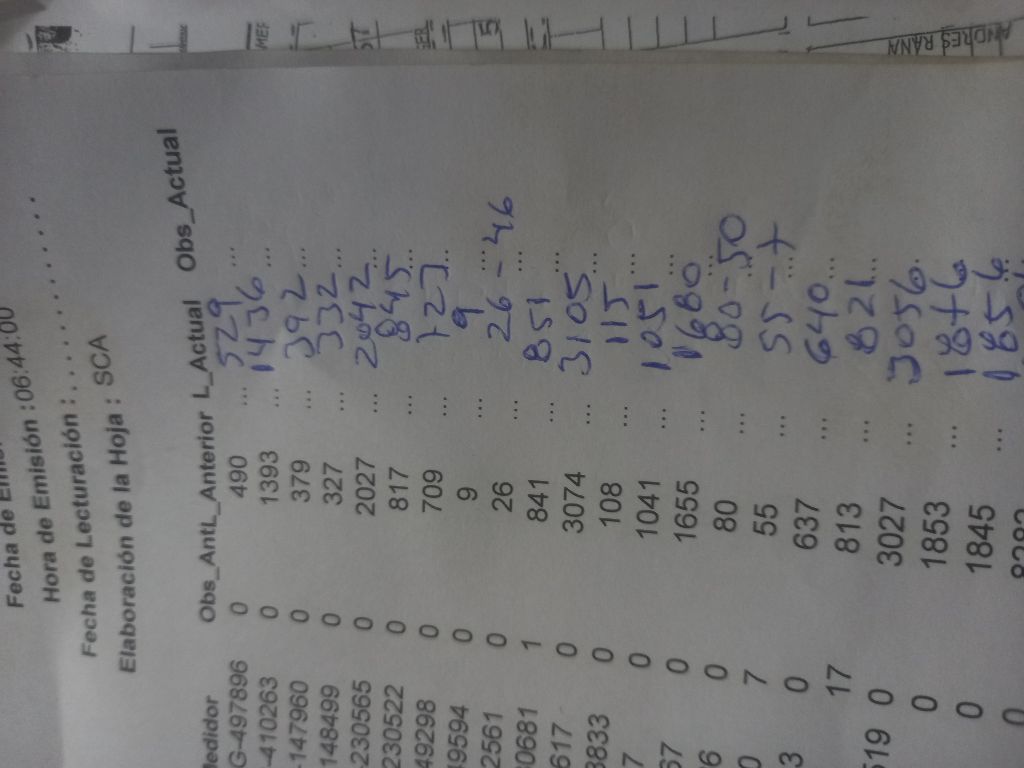 Fecha de Emis
Hora de Emisión :06:44:00
Fecha de Lecturación :..........
Elaboración de la Hoja : SCA
Medidor Obs_AntL_Anterior L_Actual Obs_Actual
G-497896 0 490 ... 529 ...
-410263 0 1393 ... 1436 ...
-147960 0 379 ... 392 ...
148499 0 327 ... 332 ...
230565 0 2027 ... 2042 ...
230522 0 817 ... 845 ...
49298 0 709 ... 727 ...
49594 0 9 ... 9 ...
2561 0 26 ... 26 - 46
0681 1 841 ... 851 ...
617 0 3074 ... 3105 ...
3833 0 108 ... 115 ...
7 0 1041 ... 1051 ...
67 0 1655 ... 1680 ...
6 0 80 ... 80 - 50
0 7 55 ... 55 - 7
3 0 637 ... 640 ...
17 813 ... 821 ...
519 0 3027 ... 3056 ...
0 1853 ... 1876
0 1845 ... 1856
0
ANDRES RANA